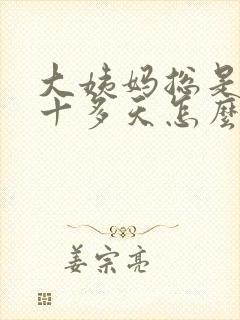 大姨妈总是
十多天怎麽
姜宗亮